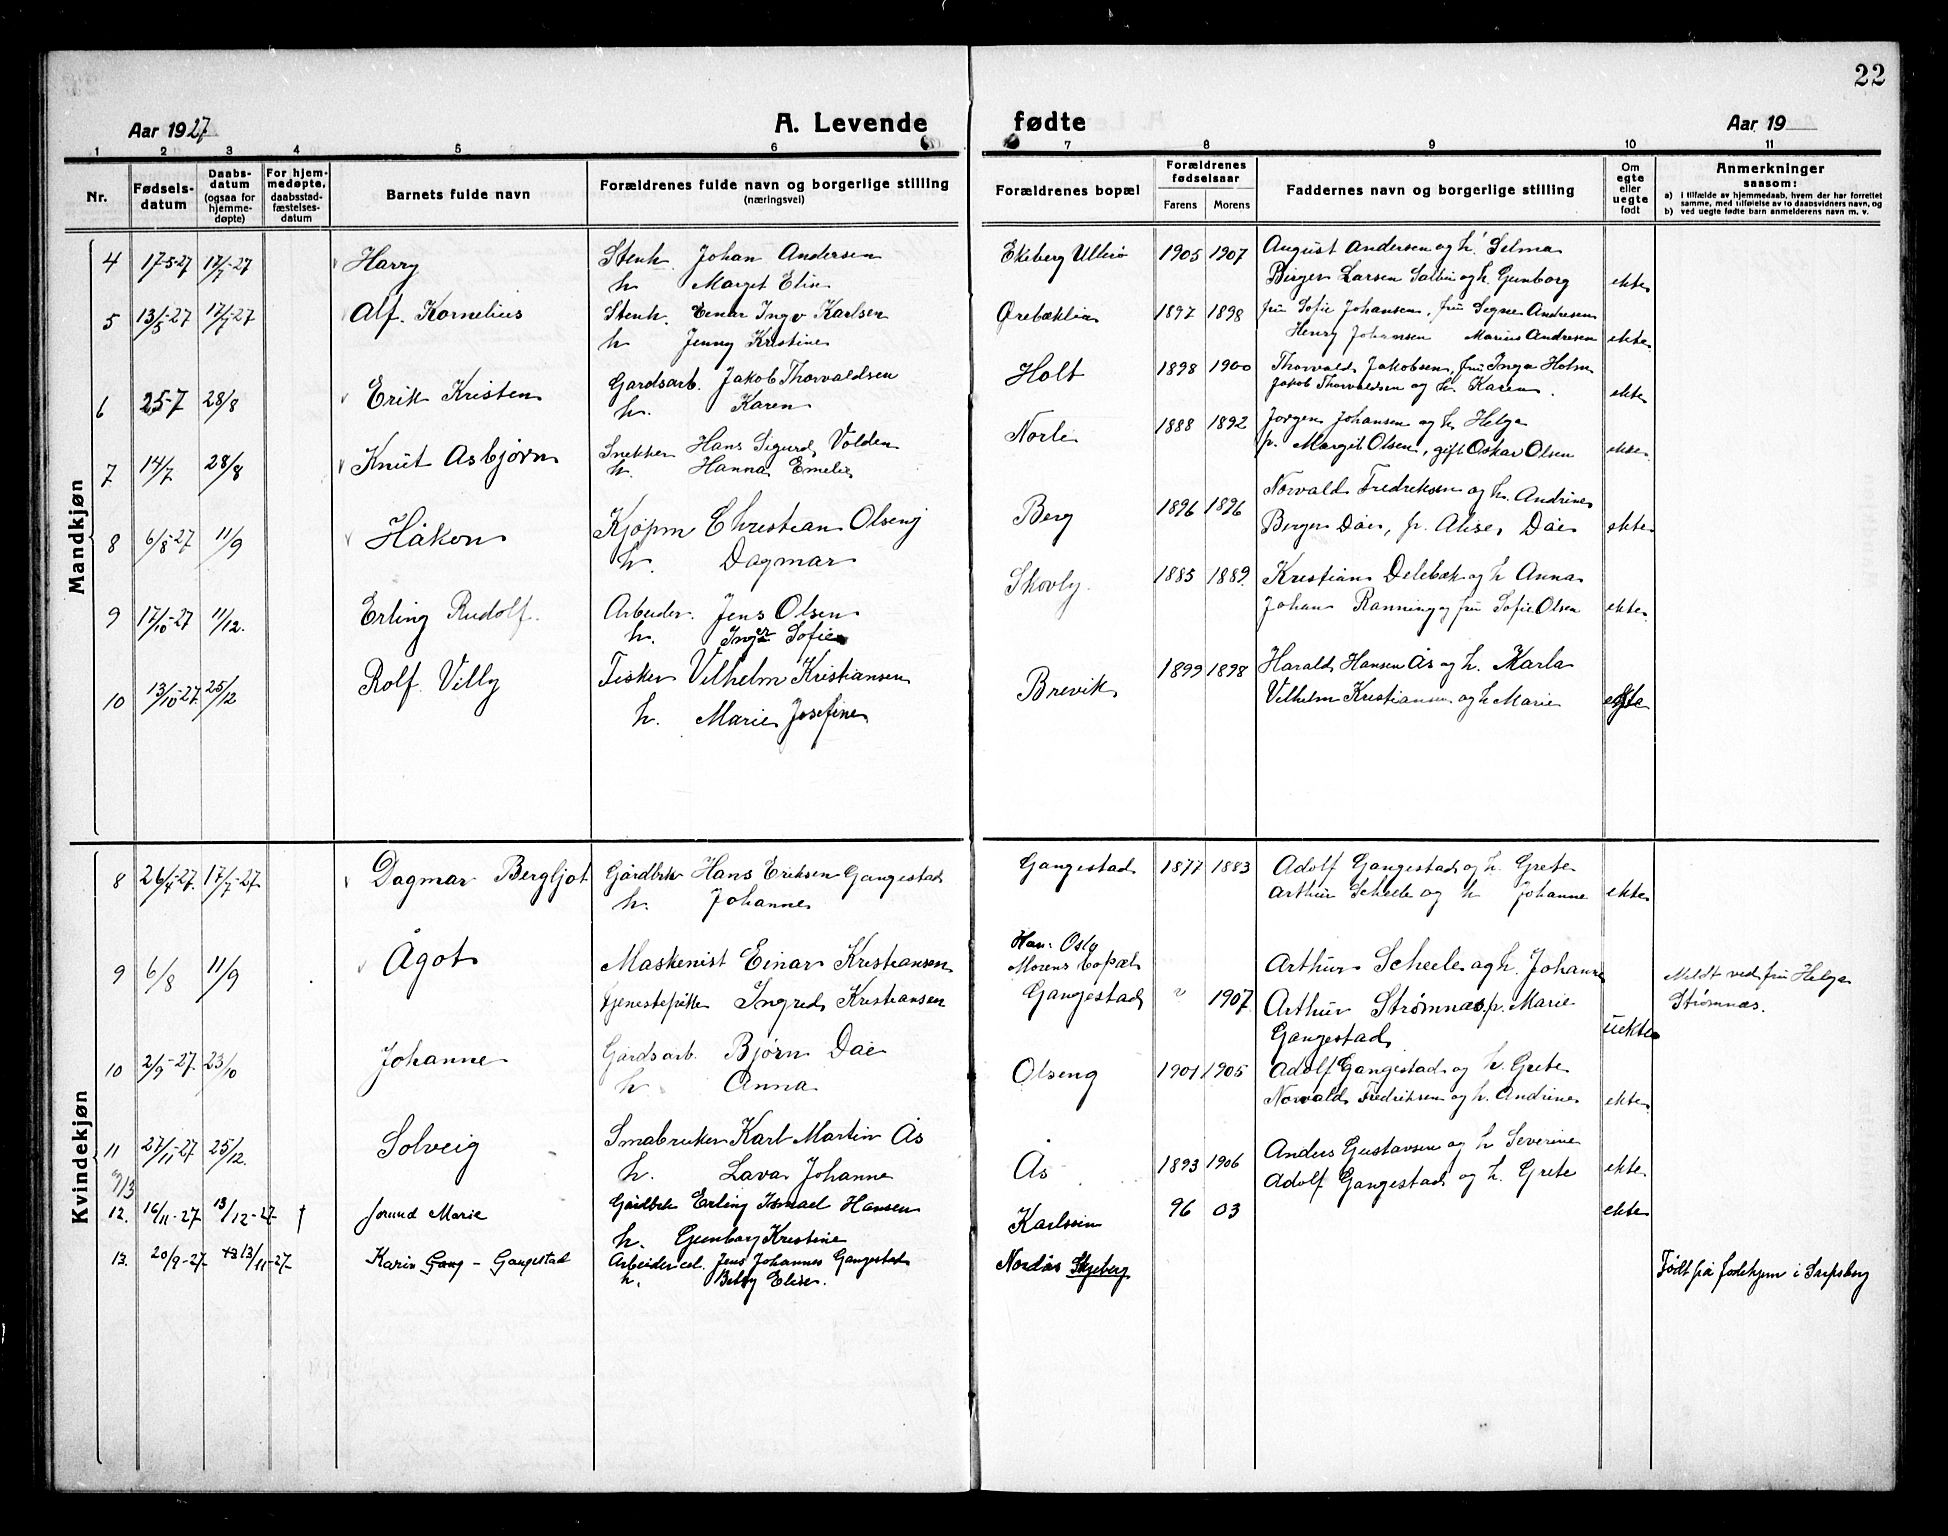 22
Aar 1927 A. Levende fødte Aar 19
1 2 3 4 5 6 7 8 9 10 11
Nr. Fødsels-datum Daabs-datum (ogsaa for hjemme-døpte) For hjem-medøpte, daabsstad-fæstelses-datum Barnets fulde navn Forældrenes fulde navn og borgerlige stilling (næringsvei) Forældrenes bopæl Forældrenes fødselsaar Farens Morens Faddernes navn og borgerlige stilling Om egte eller uegte født Anmerkninger saasom:
a) i tilfælde av hjemmedaab, hvem der har forrettet samme, med tilføielse av to daabsvidners navn, og
b) ved uegte fødte barn anmelderens navn m. v.
Mandkjøn
4 17-5-27 17/7-27 Harry Stenh. Johan Andersen Ekeberg Ullerø 1905 1907 August Andersen og h. Selma
h. Marget Elise Birger Larsen og h. Gunborg ekte
5 13/5-27 17/7-27 Alf Kornelius Stenh. Einar Ingv Karlsen Ørebæklia 1897 1898 fru Sofie Johansen, fru Signe Andresen
h. Jenny Kristine Henry Johansen Marius Andresen ekte
6 25-7 28/8 Erik Kristen Gardsarb. Jakob Thorvaldsen Holt 1898 1900 Thorvald Jakobsen, fru Inga Holm
h. Karen Jakob Thorvaldsen og h. Karen. ekte
7 14/7 28/8 Knut Asbjørn Snekker Hans Sigurd Volden Norli 1888 1892 Jørgen Johansen og h. Helga
h. Hanna Emelie p. Margit Olsen, gift Oskar Olsen ekte
8 6/8-27 11/9 Håkon Kjøpm Christian Olseng Berg 1896 1896 Norvald Fredriksen og h. Andrine
h. Dagmar Berger Dåe, p. Alise Dåe ekte
9 17/10-27 11/12. Erling Rudolf. Arbeider. Jens Olsen Skovly 1885 1889. Kristian Delebæk og h Anna
h. Inger Sofie Johan Ranning og fru Sofie Olsen ekte
10 13/10-27. 25/12 Rolf Villy Fisker Vilhelm Kristiansen Brevik 1899 1898 Harald Hansen Ås og h. Karla
h. Marie Josefine Vilhelm Kristiansen og h Marie egte
Kvindekjøn
8 26/4-27. 17/7-27 Dagmar Bergljot Gårdbrk Hans Eriksen Gangestad Gangestad 1877 1883 Adolf Gangestad og h. Grete
h. Johanne Arthur Scheele og h Johanne ekte
9 6/8 11/9 Ågot Maskenist Einar Kristiansen Han: Oslo Arthur Scheele og h. Johanne Meldt ved fru Helga
Morens bopæl
Tjenestepike Ingrid Kristiansen Gangestad 1907 Arthur Strømnæs, p. Marie Strømnæs.
Gangestad uekte
10 2/9-27. 23/10 Johanne Gårdsarb. Bjørn Dåe Olseng 1901 1905 Adolf Gangestad og h. Grete
h Anna Norvald Fredriksen og h. Andrine ekte
11 27/11-27 25/12. Solveig Småbruker Karl Martin Ås Ås 1893 1906 Anders Gustavsen og h Severine
h. Lava Johanne Adolf Gangestad og h. Grete ekte
12. 16/11-27 13/12-27 † Jorund Marie Gårdbrk Erling Ismael Hansen Karlsøin 96 03 ekte
h. Gunborg Kristine
13. 20/9-27. 13/11-27 Karin Gang - Gangestad Arbeider Jens Johannes Gangestad Nordås Skjeberg Født på fødehjem i Sarpsborg
h. Betsy Elise.